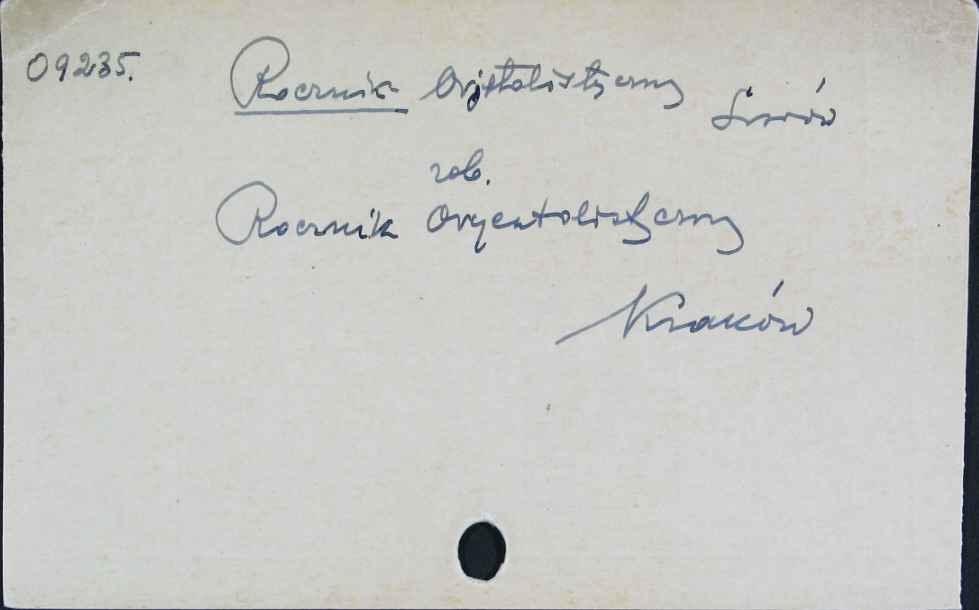 09235.
Rocznik Orjentalistyczny
Lwów
zob.
Rocznik Oryentalistyczny
Kraków